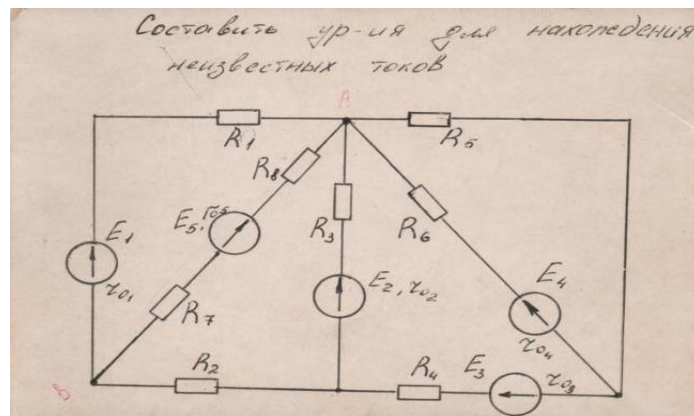 Составить ур-ия для нахождения
неизвестных токов
A
R1
R5
R8
E5, r05
R3
R6
E1
r01
E2, r02
E4
R7
r04
R2
R4
E3
r03